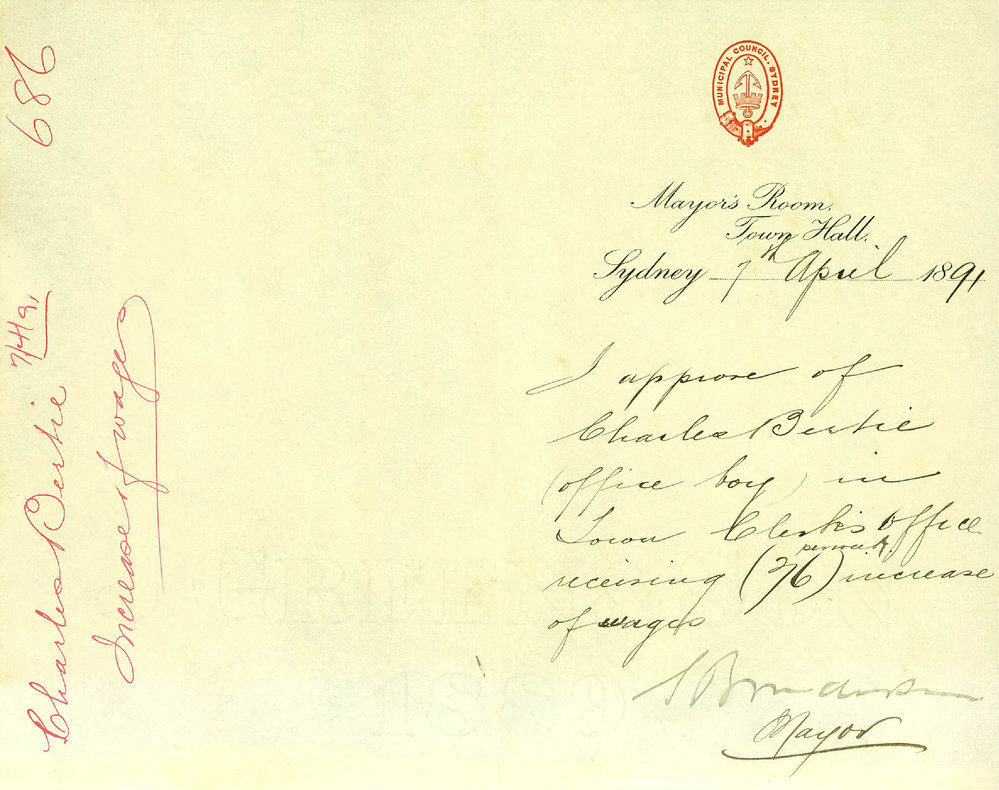 686
Charles Bertie 7/4/91
Increase of wages
MUNICIPAL COUNCIL. SYDNEY
Mayor's Room.
Town Hall.
Sydney 7th April 1891
I approve of
Charles Bertie
(office boy) in
Town Clerk's office
per week
receiving (2/6) increase
of wages
Mayor